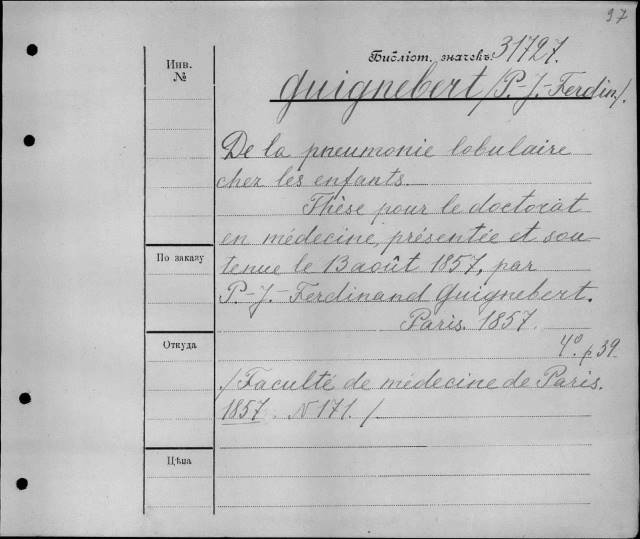 97
Библіот. значекъ: 31727.
Инв.
№
Guignebert /P.-J.-Ferdin/.
De la pneumonie lobulaire
chez les enfants.
Thèse pour le doctorat
en médecine, présentée et sou-
tenue le 13 août 1857, par
По заказу
P.-J.-Ferdinand Guignebert.
Paris. 1857.
Откуда
4º. p 39.
/Faculté de médecine de Paris.
1857. N 171./
Цѣна